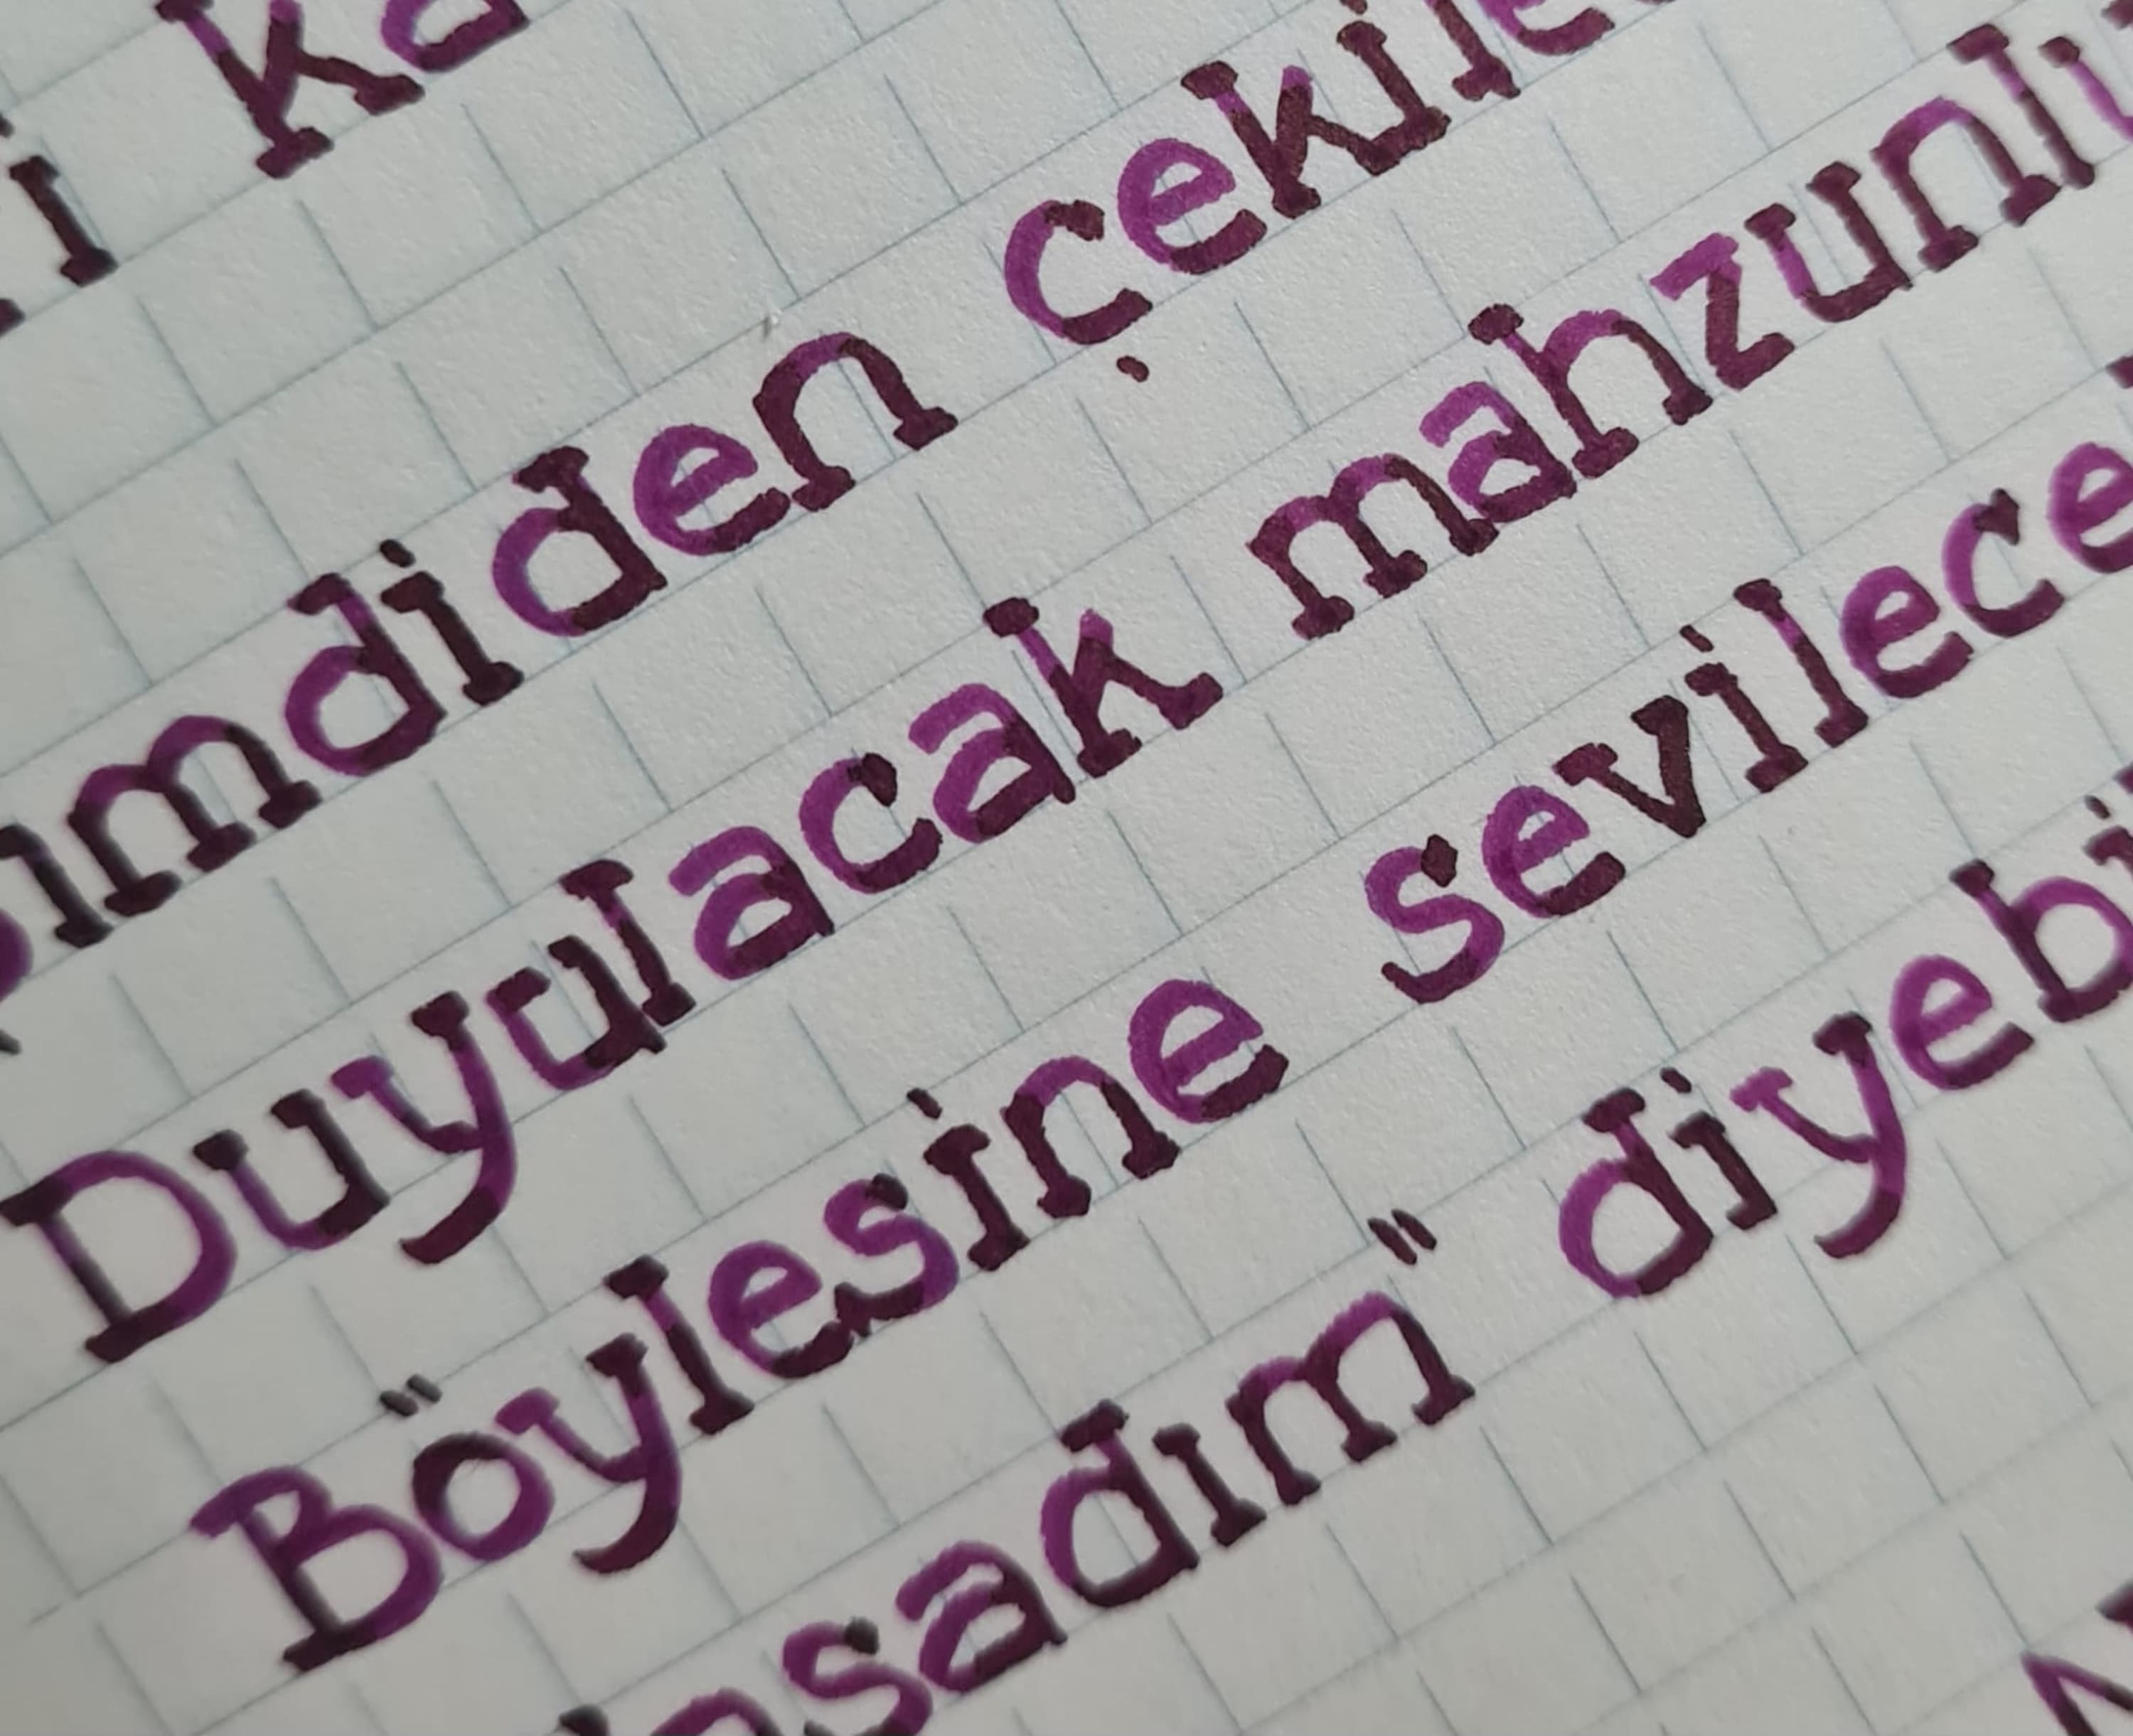 i ka
imdiden çekile
Duyulacak mahzunlu
Böylesine sevilece
asadım" diyebi